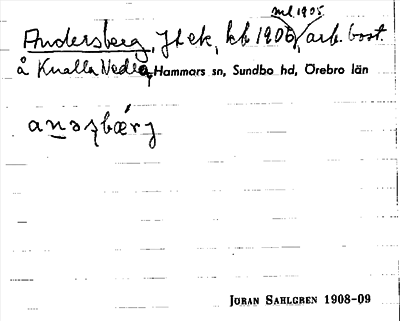 ml. 1905
Andersberg, Jt ek, kb 1906, arb. bost.
å Knalla Nedre, Hammars sn, Sundbo hd, Örebro län
anəʂbærj
JÖRAN SAHLGREN 1908-09